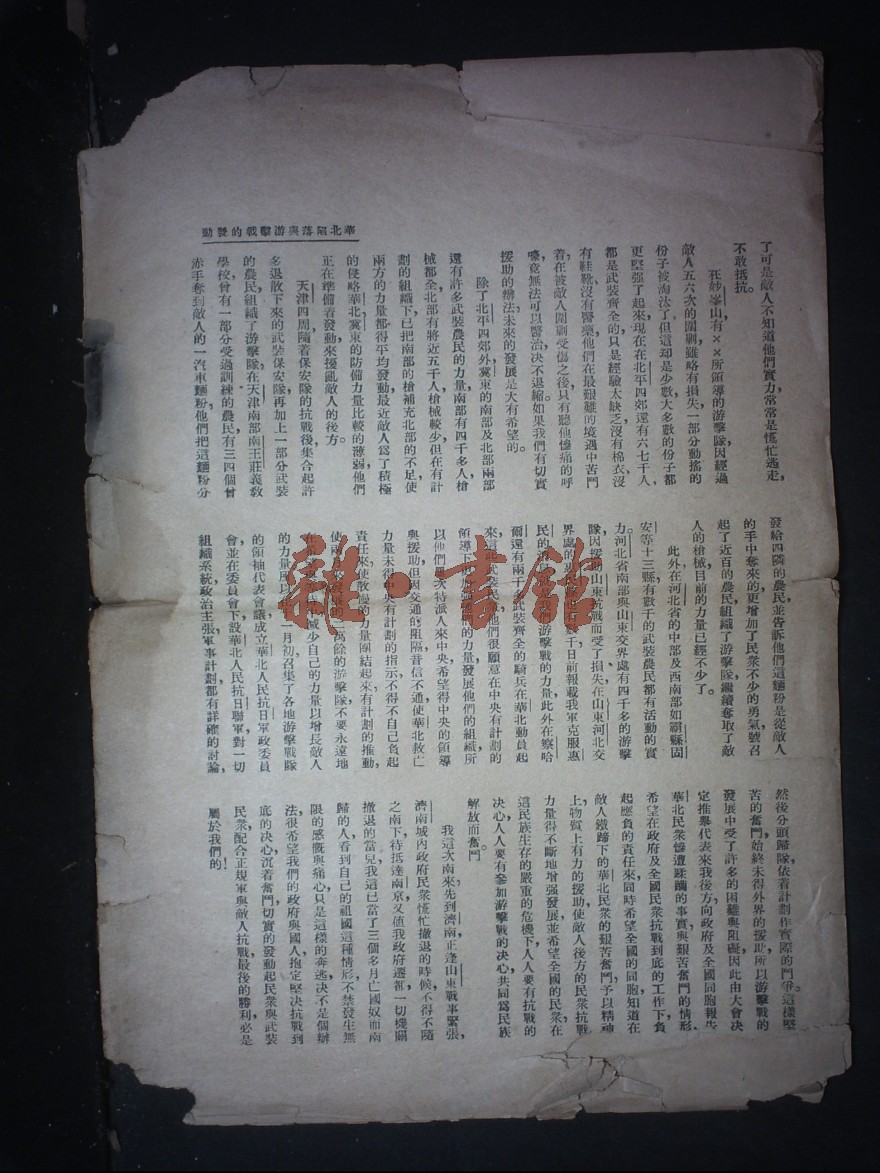 華北陷落與游擊戰的發動
了可是敵人不知道他們實力常常是慌忙逃走，
不敢抵抗。
在妙峯山有××所領導的游擊隊因經過
敵人五六次的圍剿雖略有損失一部分動搖的
份子被淘汰了但這却是少數大多數的份子都
更堅强了起來，現在在北平四郊還有六七千人，
都是武裝齊全的，只是經驗太缺乏沒有棉衣沒
有鞋靴，沒有醫藥，他們在最艱難的境遇中苦鬥
着在被敵人圍剿受傷之後，只有聽他慘痛的呼
嚎，竟無法可以醫治，決不退縮。如果我們有切實
援助的辦法，未來的發展是大有希望的。
除了北平四郊外，冀東的南部及北部兩部
還有許多武裝農民的力量，南部有四千多人，槍
械都全，北部有將近五千人，槍械較少，但在有計
劃的組織下，已把南部的槍補充北部的不足，使
兩方的力量都得平均發動，最近敵人爲了積極
的侵略華北，冀東的防備力量比較的薄弱，他們
正在準備着發動來擾亂敵人的後方。
天津四周，隨着保安隊的抗戰後，集合起許
多退散下來的武裝保安隊，再加上一部分武裝
的農民，組織了游擊隊，在天津南部南王莊義敎
學校，曾有一部分受過訓練的農民，有三四個曾
赤手奪到敵人的一汽車麵粉，他們把這麵粉分
發給四隣的農民，並告訴他們這麵粉是從敵人
的手中奪來的，更增加了民衆不少的勇氣，號召
起了近百的農民，組織了游擊隊，繼續奪取了敵
人的槍械，目前的力量已經不少了。
此外在河北省的中部及西南部，如霸縣固
安等十三縣，有數千的武裝農民都有活動的實
力，河北省南部與山東交界處有四千多的游擊
隊，因援助山東抗戰而受了損失，在山東河北交
界處的 數千，日前報載我軍克服惠
民的 游擊戰的力量，此外在察哈
爾還有兩千多武裝齊全的騎兵，在華北動員起
來這 武裝民 他們很願意在中央有計劃的
領導下 的力量，發展他們的組織，所
以他們屢次特派人來中央，希望得中央的領導
與援助，但因交通的阻隔，音信不通，使華北救亡
力量未得中央有計劃的指示，不得不自己負起
責任來，使散漫的力量團結起來，有計劃的推動，
使兩 萬餘的游擊隊，不要永遠地
在 減少自己的力量以增長敵人
的力量，所以 二月初召集了各地游擊戰隊
的領袖代表會議，成立華北人民抗日軍政委員
會，並在委員會下設華北人民抗日聯軍，對一切
組織系統，政治主張，軍事計劃，都有詳確的討論，
然後分頭歸隊，依着計劃作實際的鬥爭。這樣堅
苦的奮鬥，始終未得外界的援助，所以游擊戰的
發展中受了許多的困難與阻礙，因此由大會决
定推舉代表來我後方向政府及全國同胞報告
華北民衆慘遭蹂躪的事實與艱苦奮鬥的情形，
希望在政府及全國民衆抗戰到底的工作下，負
起應負的責任來，同時希望全國的同胞知道在
敵人鐵蹄下的華北民衆的艱苦奮鬥，予以精神
上，物質上有力的援助，使敵人後方的民衆抗戰
力量得不斷地增强發展，並希望全國的民衆，在
這民族生存的嚴重的危機下，人人要有抗戰的
决心，人人要有參加游擊戰的决心，共同爲民族
解放而奮鬥。
我這次南來，先到濟南，正逢山東戰事緊張，
濟南城內政府民衆慌忙撤退的時候，不得不隨
之南下，待抵達南京，又值我政府遷都，一切機關
撤退的當兒，我這已當了三個多月亡國奴而南
歸的人，看到自己的祖國這種情形，不禁發生無
限的感慨與痛心，只是這樣的奔逃，决不是個辦
法，很希望我們的政府與國人，抱定堅决抗戰到
底的决心，沉着奮鬥，切實的發動起民衆與武裝
民衆，配合正規軍與敵人抗戰，最後的勝利，必是
屬於我們的！
雜·書館